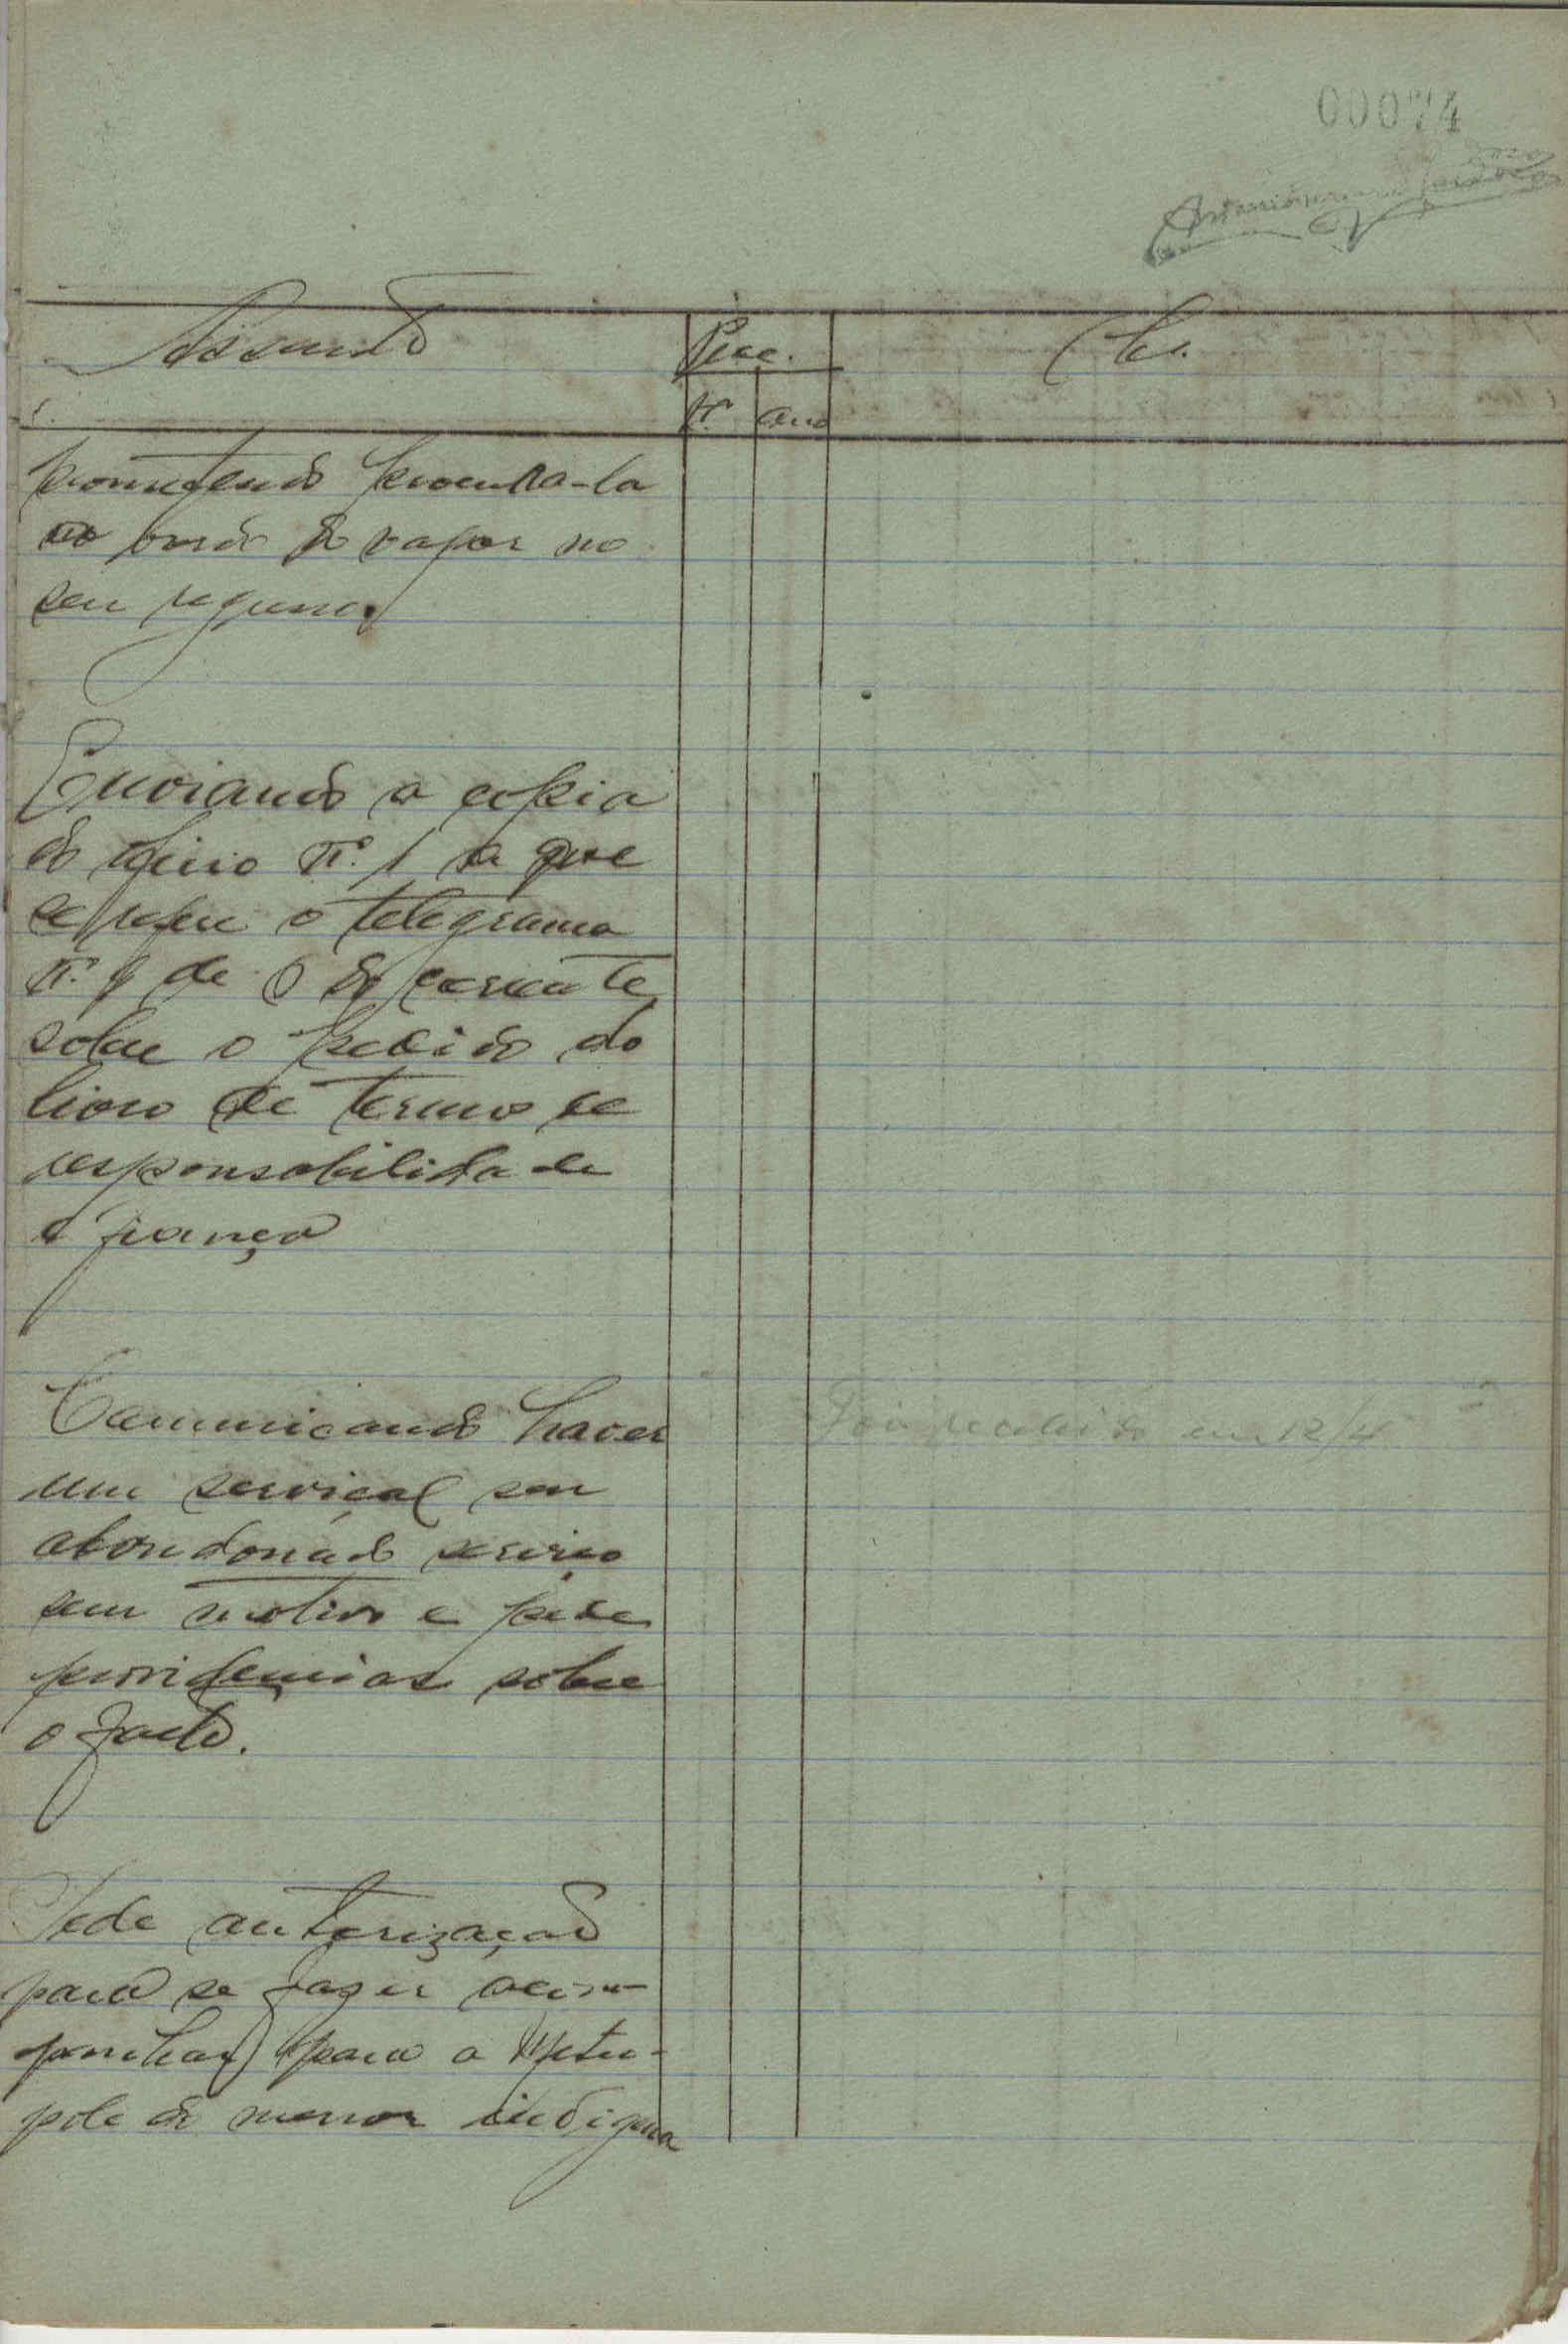 00074
Assunto
Proc.
Obs.
Nº
ano
prometendo procura-la
ao bordo do vapor no
seu regresso
Enviando a copia
do oficio Nº. 1 a que
se refere o telegrama
Nº. 9 de 6 do corrente
sobre o pedido do
livro de termo de
responsabilidade
e fiança
Comunicando haver
um serviçal seu
abandonado serviço
sem motivo e pede
providencias sobre
o facto.
Foi recebido em 12/4
Pede autorização
para se fazer acom-
panhar para a Metro-
pole do menor indigena